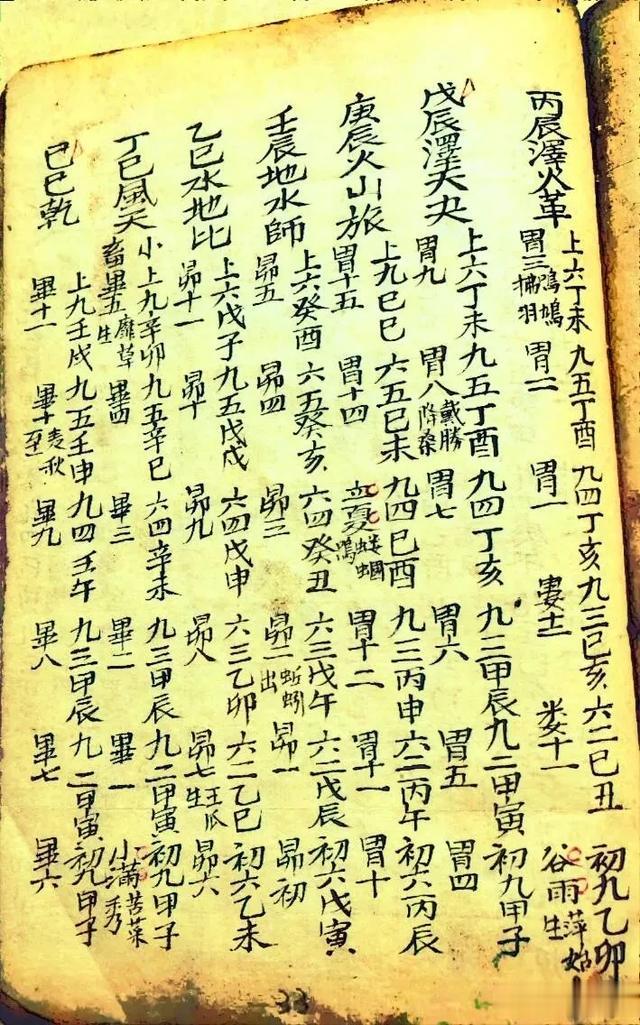 丙辰澤火革 上六丁未 九五丁酉 九四丁亥 九三巳亥 六二巳丑 初九乙卯
胃三 鳴鳩拂羽 胃二 胃一 婁十二 婁十一 谷雨 萍始生
戊辰澤天夬 上六丁未 九五丁酉 九四丁亥 九三甲辰 九二甲寅 初九甲子
胃九 胃八 戴勝降桑 胃七 胃六 胃五 胃四
庚辰火山旅 上九巳巳 六五巳未 九四巳酉 九三丙申 六二丙午 初六丙辰
胃十五 胃十四 立夏 螻蟈鳴 胃十二 胃十一 胃十
壬辰地水師 上六癸酉 六五癸亥 六四癸丑 六三戊午 六二戊辰 初六戊寅
昴五 昴四 昴三 昴二 蚯蚓出 昴一 昴初
乙巳水地比 上六戊子 九五戊戌 六四戊申 六三乙卯 六二乙巳 初六乙未
昴十一 昴十 昴九 昴八 昴七 王瓜生 昴六
丁巳風天小畜 上九辛卯 九五辛巳 六四辛未 九三甲辰 九二甲寅 初九甲子
畢五 靡草生 畢四 畢三 畢二 畢一 小滿 苦菜秀
巳巳乾 上九壬戌 九五壬申 九四壬午 九三甲辰 九二甲寅 初九甲子
畢十一 畢十 麦秋至 畢九 畢八 畢七 畢六
33